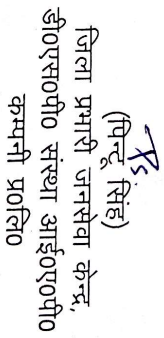 (पिन्टू सिंह)
जिला प्रभारी जनसेवा केन्द्र,
डी०एस०पी० संस्था आई०ए०पी०
कम्पनी प्र०लि०